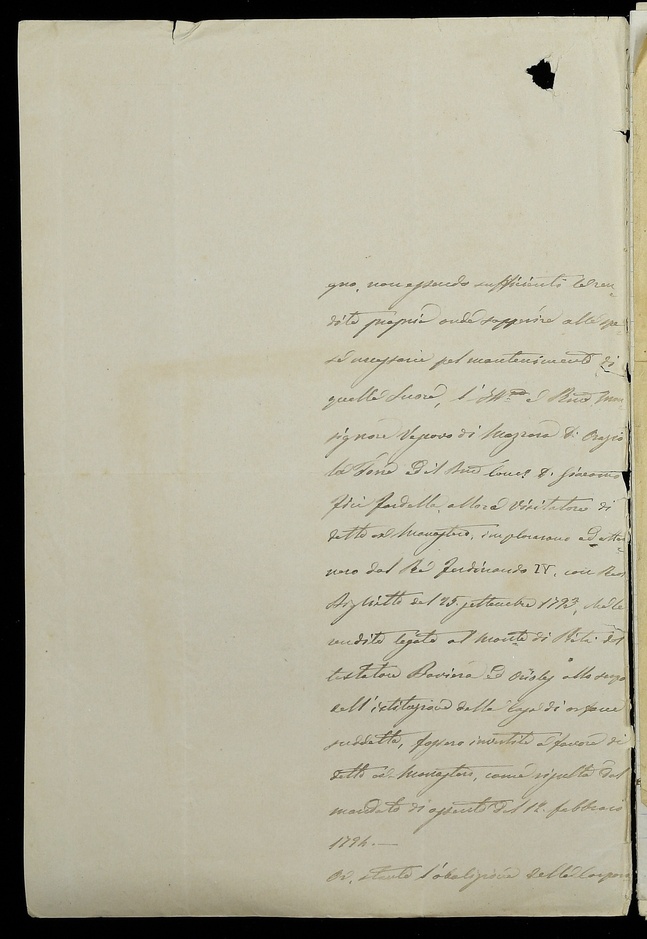 gno, non essendo sufficienti le ren-
dite proprie onde supplire alle spe-
se necessarie pel mantenimento di
quelle Suore, l'Ill.mo e Rmo Mon-
signore Vescovo di Mazzara D. Orazio
la Torre ed il Rmo Can.co D. Giacomo
Fici Fardella, allora Visitatore di
detto Monastero, implorarono ed otten-
nero dal Re Ferdinando IV, con Real
Biglietto del 25 settembre 1793, che le
rendite legate al Monte di Pietà dal
testatore Baviera ed allo scopo
dell'istituzione della Casa di orfane
suddette, fossero investite a favore di
detto Monastero, come risulta dal
mandato di del 12 febbraio
1794.—
Or, stante l'abolizione delle Corpora